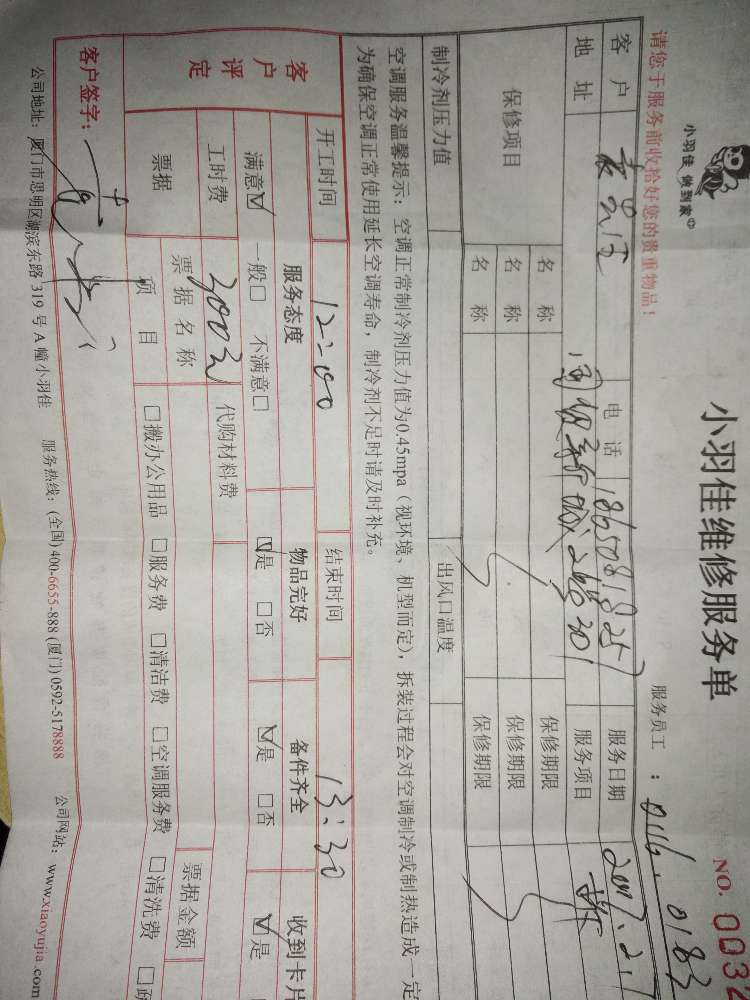 小羽佳 做到家
小羽佳维修服务单
NO. 0032
请您于服务前收拾好您的贵重物品!
服务员工: 0116. 0183
客户 电话 18650818257 服务日期 2017.2.1
地址 2梯301 服务项目
保修项目
名称 保修期限
名称 保修期限
名称 保修期限
制冷剂压力值 出风口温度
空调服务温馨提示: 空调正常制冷剂压力值为0.45mpa (视环境、机型而定), 拆装过程会对空调制冷或制热造成一定
为确保空调正常使用延长空调寿命, 制冷剂不足时请及时补充。
客户评定
开工时间 12:00 结束时间 13:30
服务态度 物品完好 备件齐全 收到卡片
满意☑ 一般□ 不满意□ ☑是 □否 ☑是 □否 ☑是
工时费 300元 代购材料费
票据 票据名称 票据金额
项目 □搬办公用品 □服务费 □清洁费 □空调服务费 □清洗费
客户签字:
公司地址: 厦门市思明区湖滨东路 319 号 A 幢小羽佳 服务热线: (全国) 400-6655-888 (厦门) 0592-5178888 公司网站: www.xiaoyujia.com